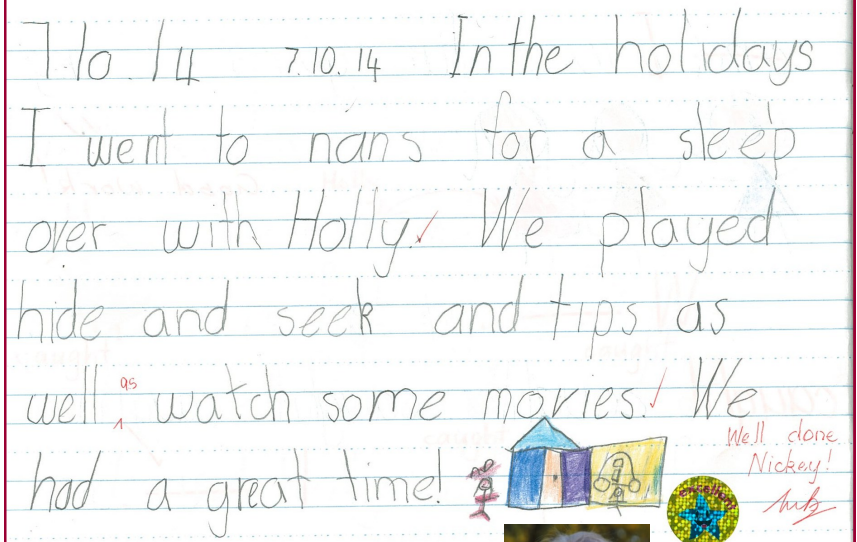 7.10.14 7.10.14 In the holidays
I went to nans for a sleep
over with Holly. We played
hide and seek and tips as
well as watch some movies. We
had a great time!
Well done
Nickey!
excellent